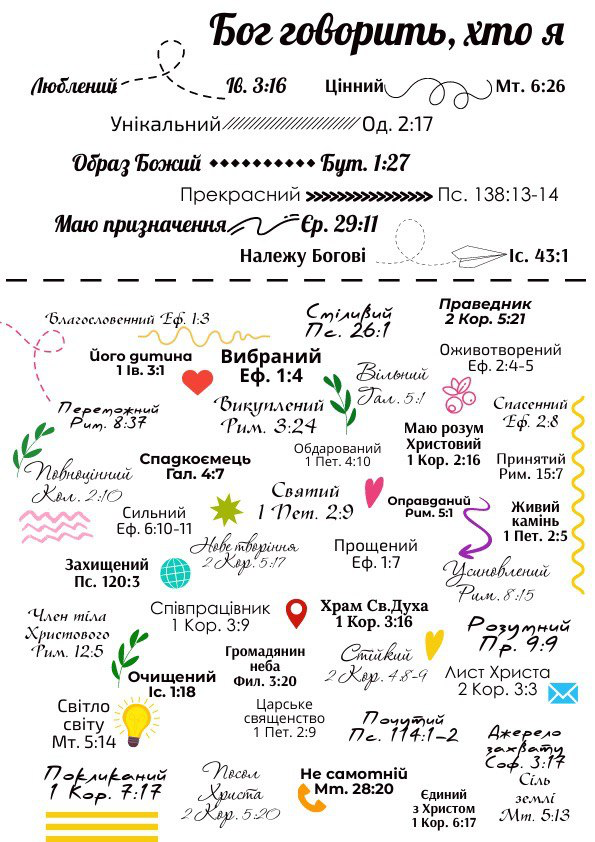 Бог говорить, хто я
Люблений Ів. 3:16 Цінний Мт. 6:26
Унікальний Од. 2:17
Образ Божий Бут. 1:27
Прекрасний Пс. 138:13-14
Маю призначення Єр. 29:11
Належу Богові Іс. 43:1
Благословенний Еф. 1:3
Стіливий
Пс. 26:1
Праведник
2 Кор. 5:21
Його дитина
1 Ів. 3:1
Вибраний
Еф. 1:4
Вільний
Гал. 5:1
Оживотворений
Еф. 2:4-5
Переможний
Рим. 8:37
Викуплений
Рим. 3:24
Маю розум
Христовий
1 Кор. 2:16
Спасенний
Еф. 2:8
Повноцінний
Кол. 2:10
Спадкоємець
Гал. 4:7
Обдарований
1 Пет. 4:10
Принятий
Рим. 15:7
Сильний
Еф. 6:10-11
Святий
1 Пет. 2:9
Оправданий
Рим. 5:1
Живий
камінь
1 Пет. 2:5
Захищений
Пс. 120:3
Нове творіння
2 Кор. 5:17
Прощений
Еф. 1:7
Усиновлений
Рим. 8:15
Член тіла
Христового
Рим. 12:5
Співпрацівник
1 Кор. 3:9
Храм Св.Духа
1 Кор. 3:16
Розумний
Пр. 9:9
Очищений
Іс. 1:18
Громадянин
неба
Фил. 3:20
Стійкий
2 Кор. 4:8-9
Лист Христа
2 Кор. 3:3
Світло
світу
Мт. 5:14
Царське
священство
1 Пет. 2:9
Почутий
Пс. 114:1-2
Джерело
захвату
Соф. 3:17
Покликаний
1 Кор. 7:17
Посол
Христа
2 Кор. 5:20
Не самотній
Мт. 28:20
Єдиний
з Христом
1 Кор. 6:17
Сіль
землі
Мт. 5:13